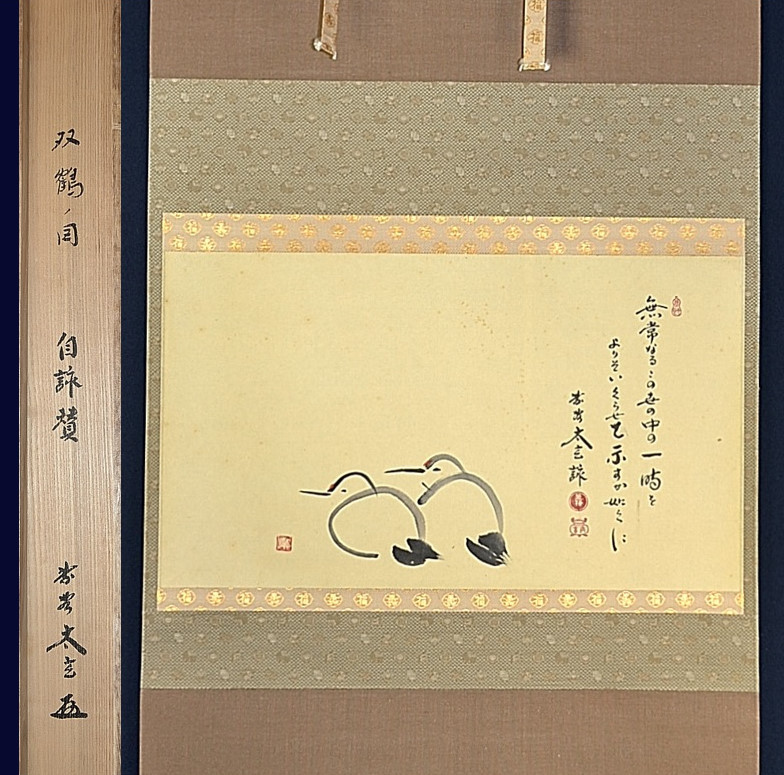 双鶴ノ図
自詠賛
太玄
無常なるこの世の中の一時を
よりそいくらせと示すか如くに
太玄詠